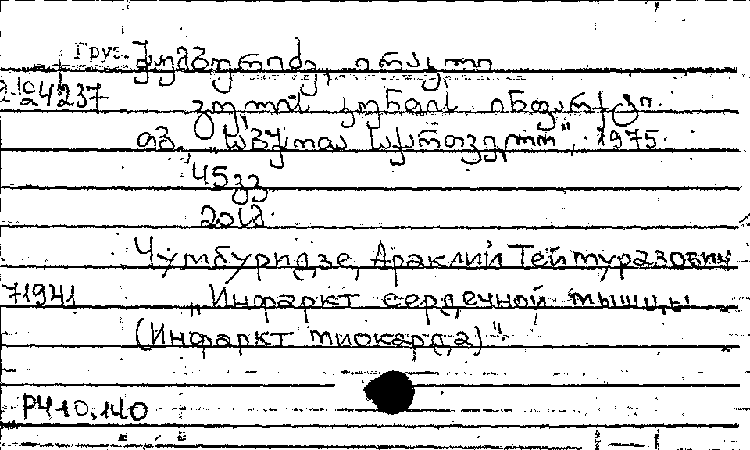 Груз. ჭუმბურიძე, ირაკლი
გულის კუნთის ინფარქტი.
თბ., "საბჭოთა საქართველო", 1975.
45გვ.
20სმ.
Чумбуридзе, Араклий Теймуразович
71941 "Инфаркт сердечной мышцы
(Инфаркт миокарда)"
P410.140